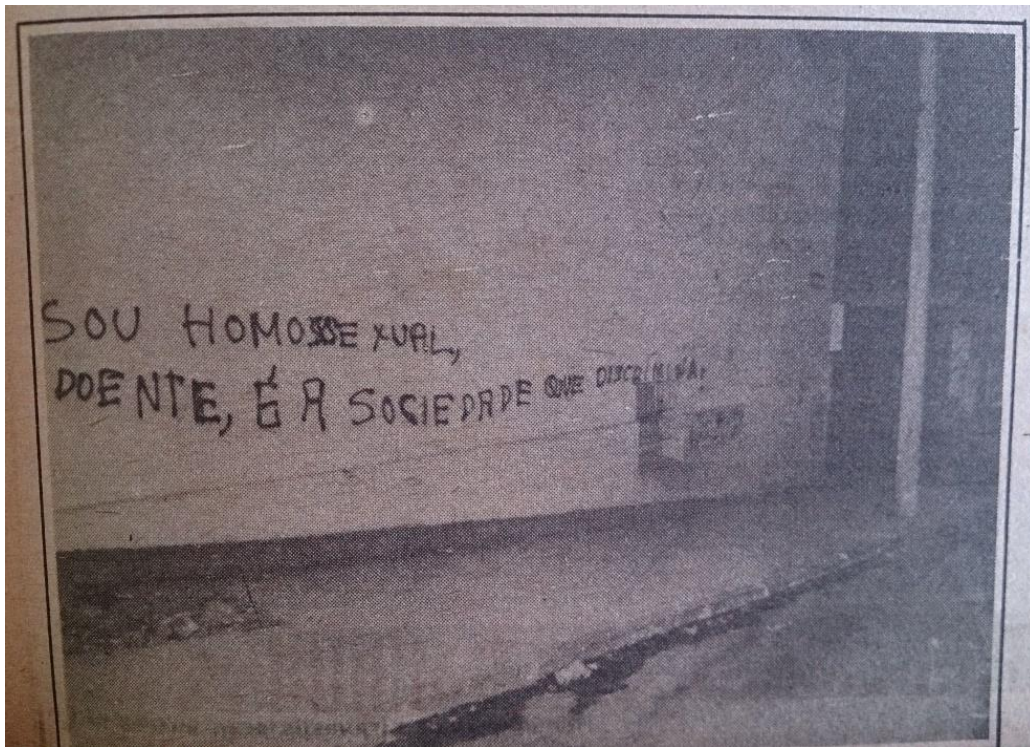 SOU HOMOSSEXUAL,
DOENTE, É A SOCIEDADE QUE DISCRIMINA.